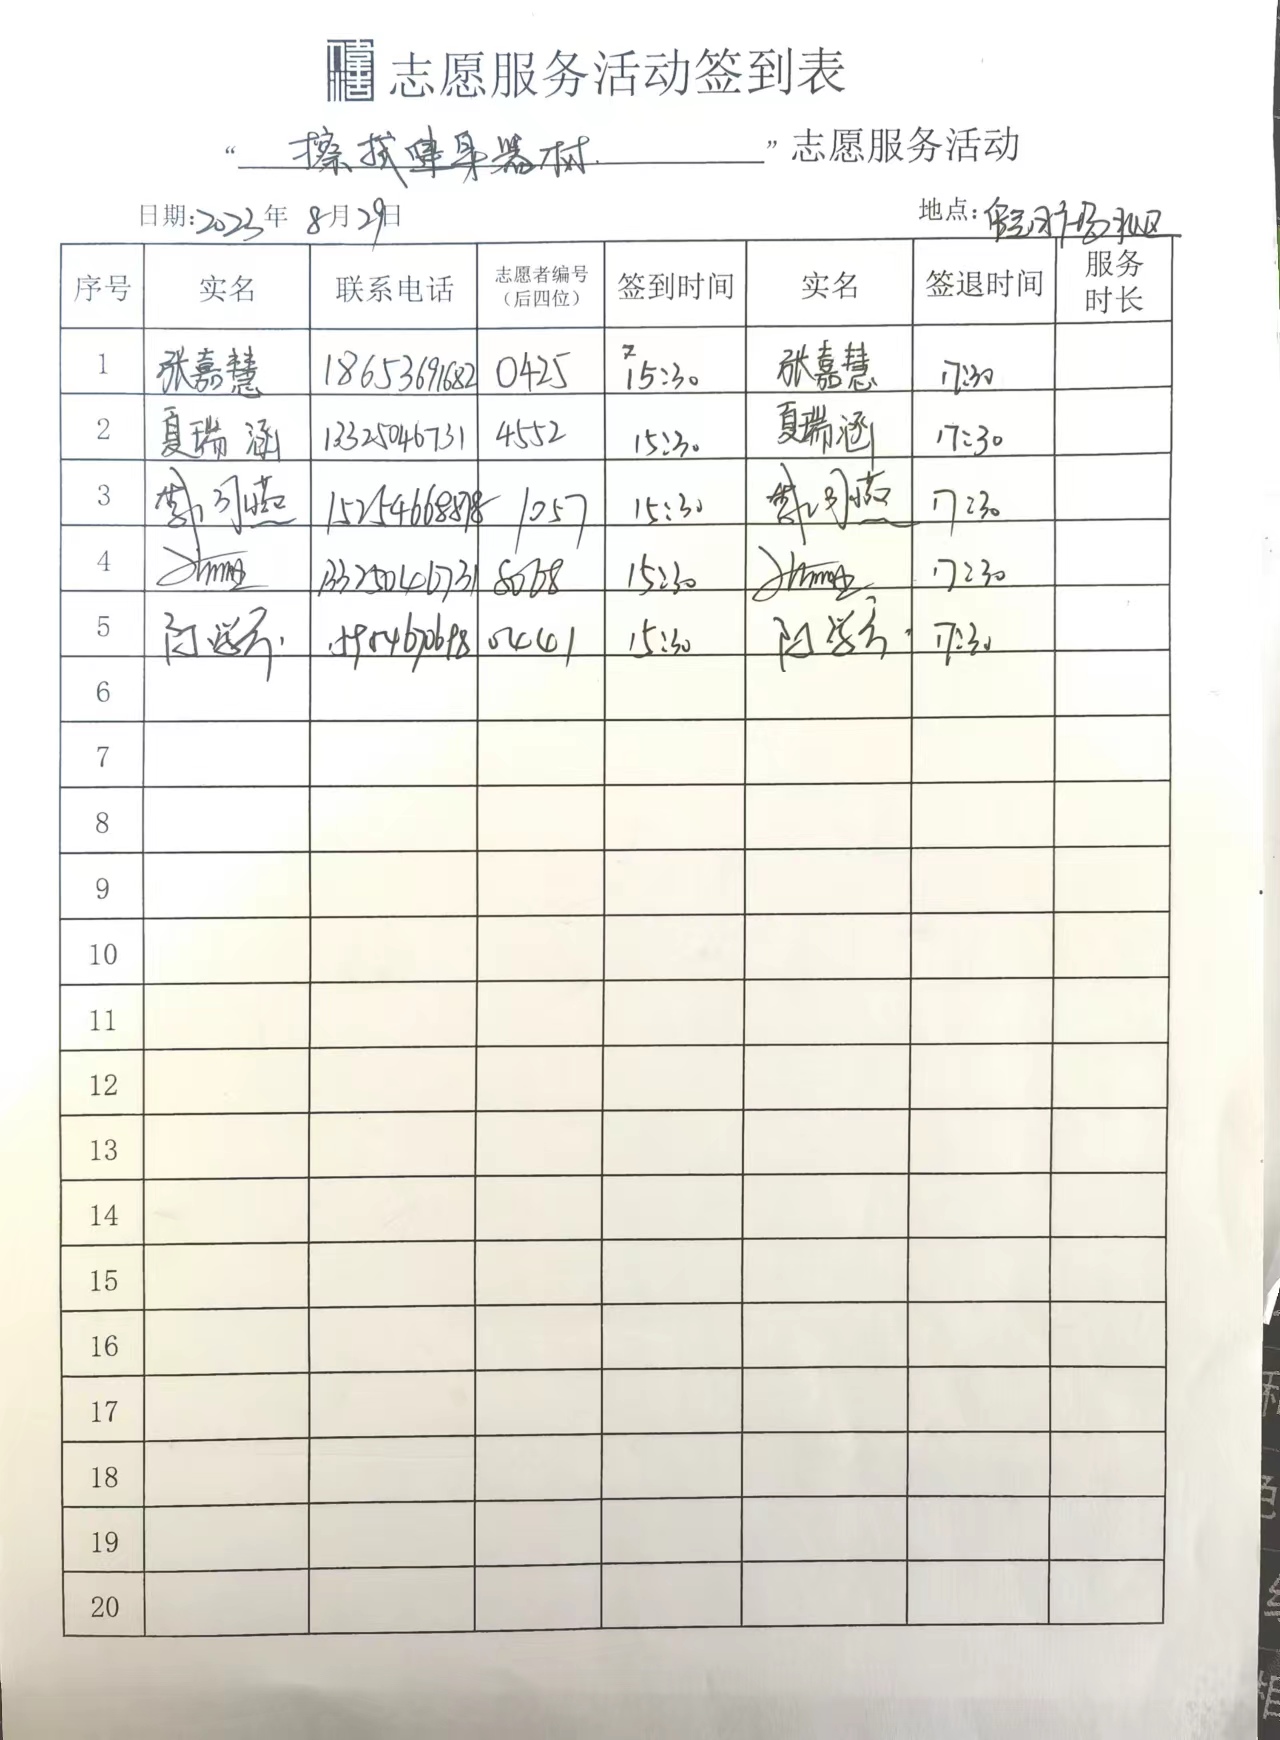 志愿服务活动签到表
“擦拭健身器材”志愿服务活动
日期:2023年 8月29日 地点:
序号 实名 联系电话 志愿者编号（后四位） 签到时间 实名 签退时间 服务时长
1 张嘉慧 18653691682 0425 15:30 张嘉慧 17:30
2 夏瑞涵 13325046731 4552 15:30 夏瑞涵 17:30
3 1057 15:30 17:30
4 13325046731 15:30 17:30
5 0441 15:30 17:30
6
7
8
9
10
11
12
13
14
15
16
17
18
19
20